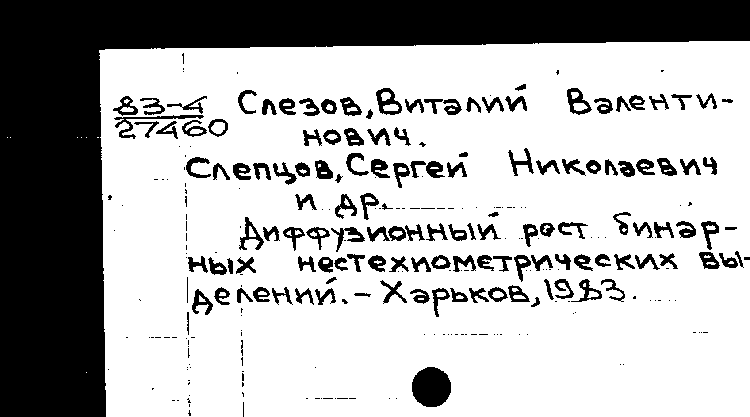 83-4 Слезов, Виталий Валенти-
27460 нович.
Слепцов, Сергей Николаевич
и др.
Диффузионный рост бинар-
ных нестехиометрических вы-
делений. - Харьков, 1983.